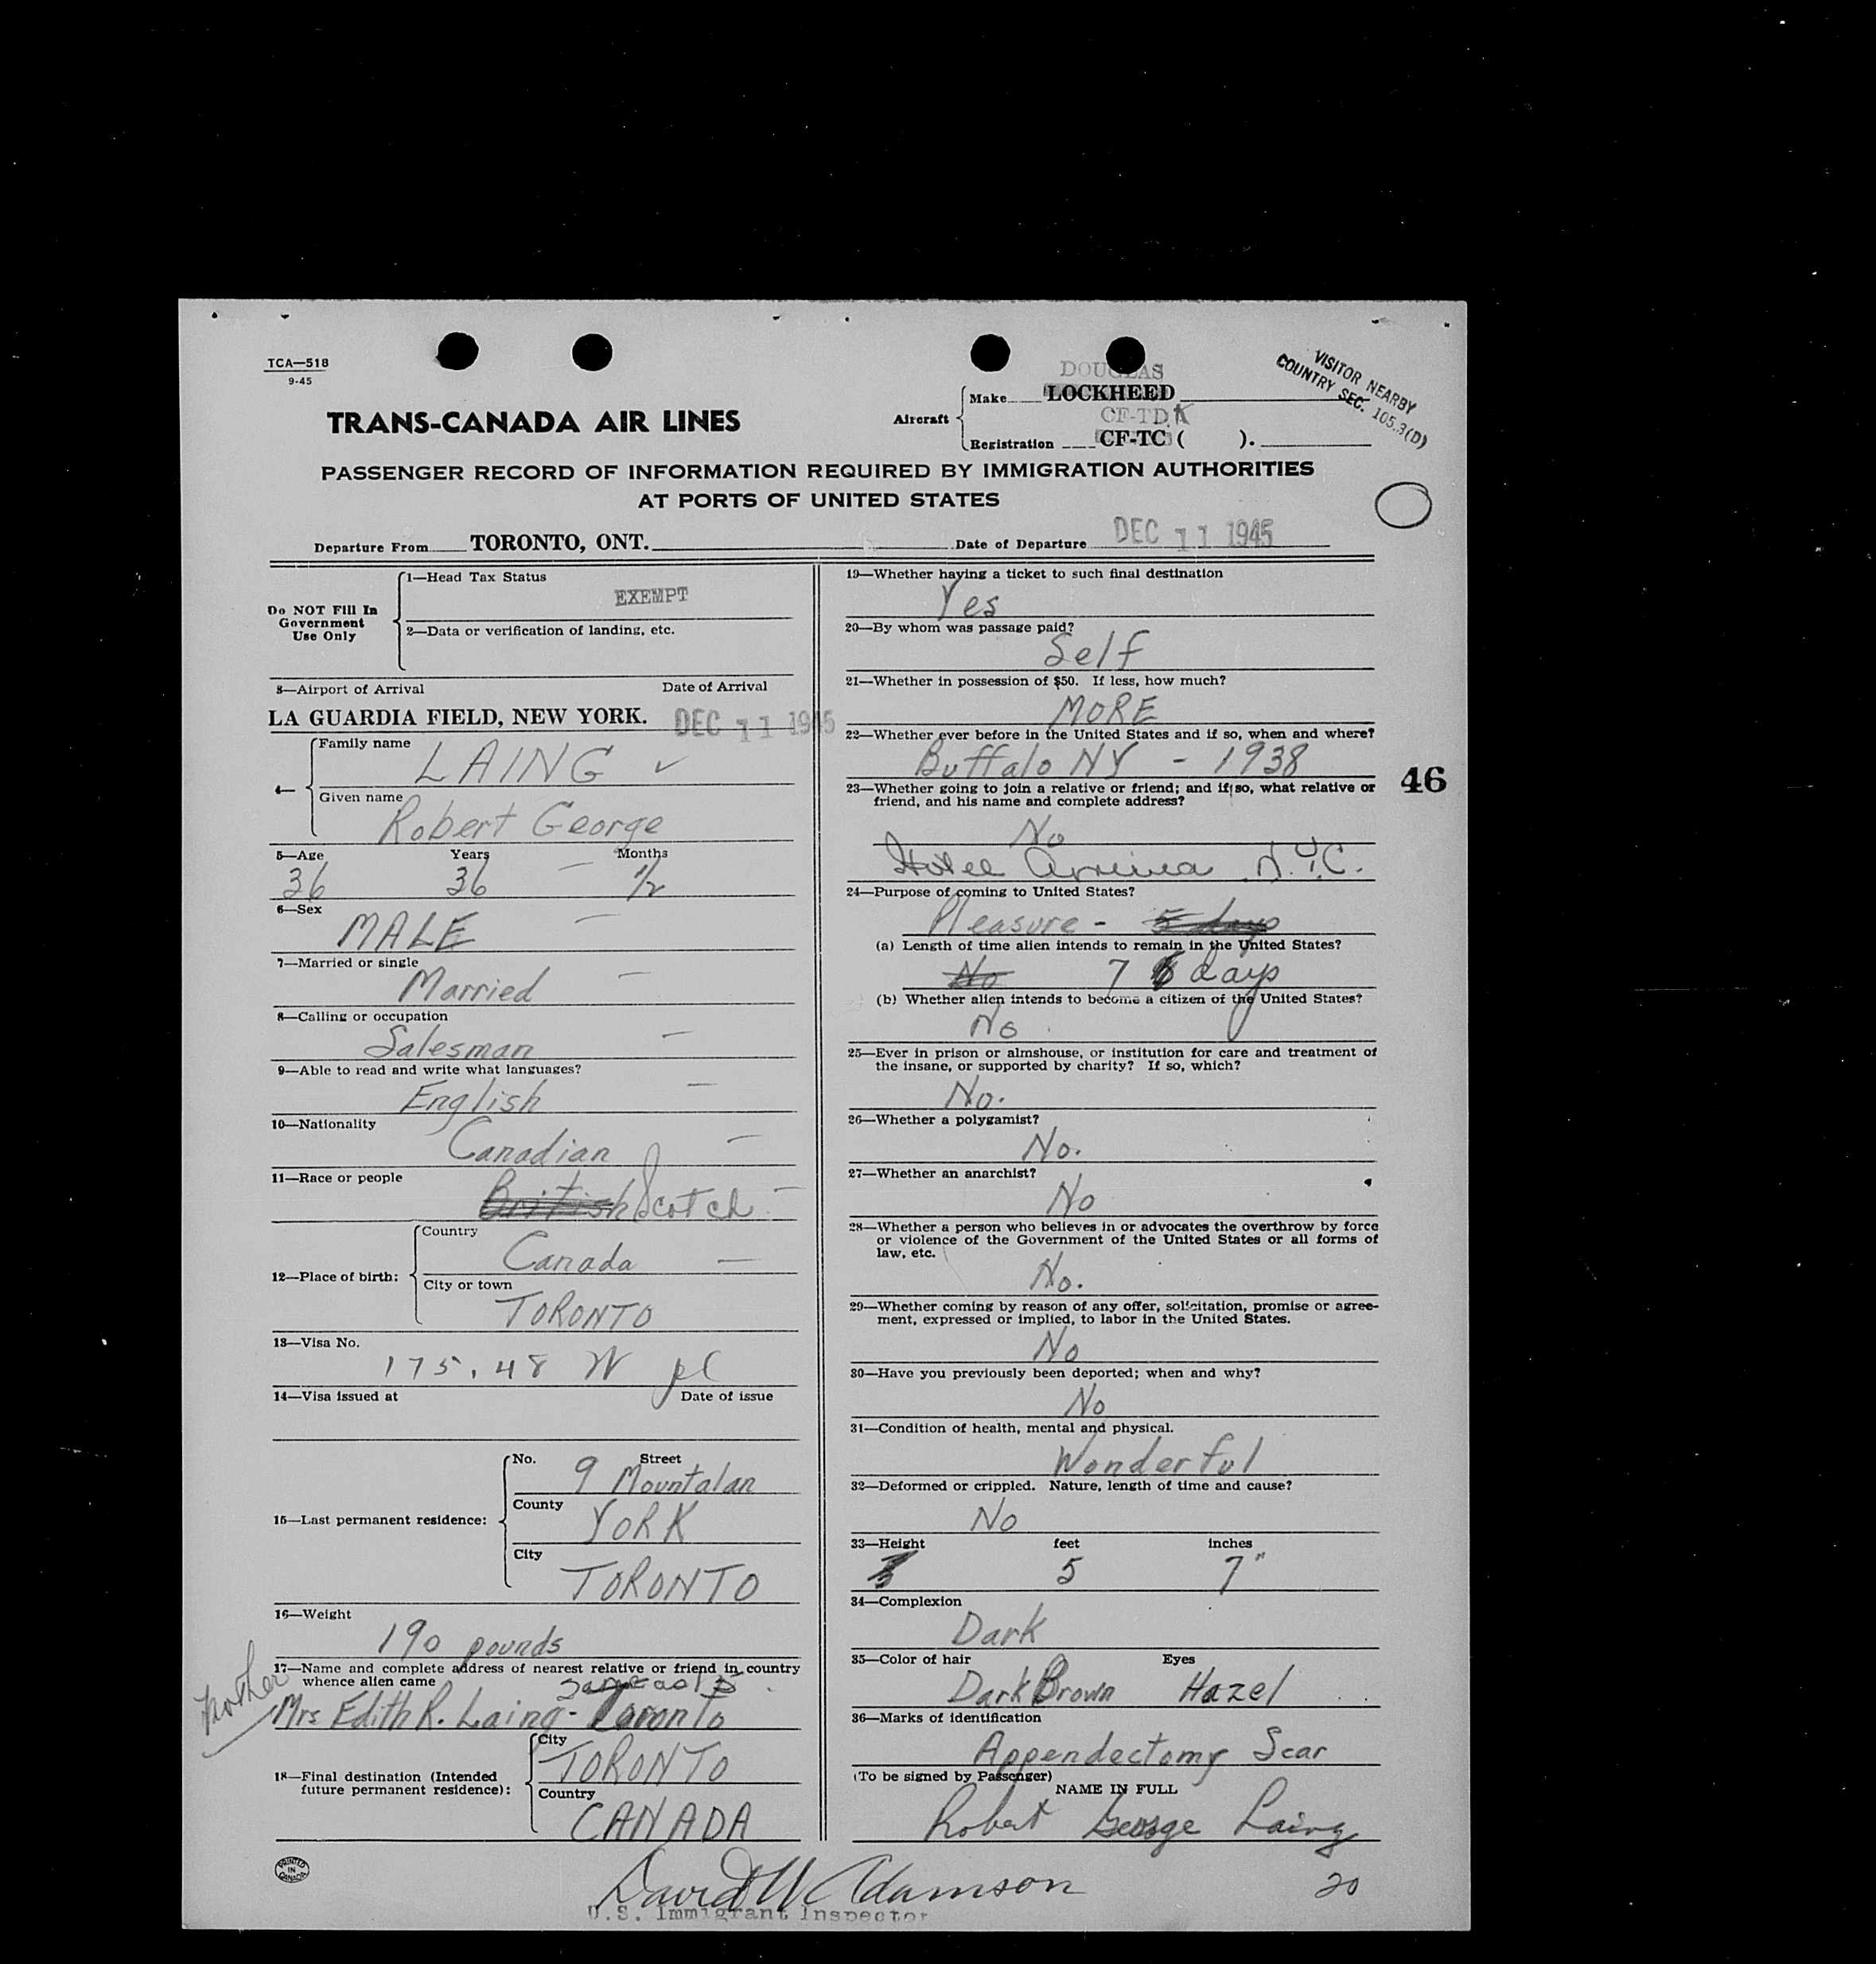 TCA—518
9-45
DOUGLAS
Make LOCKHEED
VISITOR NEARBY
COUNTRY SEC. 105.3(D)
TRANS-CANADA AIR LINES
Aircraft
CF-TDK
Registration CF-TC ( ).
PASSENGER RECORD OF INFORMATION REQUIRED BY IMMIGRATION AUTHORITIES
AT PORTS OF UNITED STATES
Departure From TORONTO, ONT. Date of Departure DEC 11 1945
Do NOT Fill In
Government
Use Only
1—Head Tax Status
EXEMPT
2—Data or verification of landing, etc.
3—Airport of Arrival Date of Arrival
LA GUARDIA FIELD, NEW YORK. DEC 11 1945
4—
Family name
LAING ✓
Given name
Robert George
5—Age Years Months
36 36 — 1/2
6—Sex
MALE —
7—Married or single
Married —
8—Calling or occupation
Salesman —
9—Able to read and write what languages?
English —
10—Nationality
Canadian —
11—Race or people
British Scotch —
12—Place of birth:
Country
Canada —
City or town
TORONTO
13—Visa No.
175.48 W
14—Visa issued at Date of issue
15—Last permanent residence:
No. Street
9 Mountalan
County
YORK
City
TORONTO
16—Weight
190 pounds
17—Name and complete address of nearest relative or friend in country
whence alien came
same as 15
Mother
Mrs Edith R. Laing - Toronto
18—Final destination (Intended
future permanent residence):
City
TORONTO
Country
CANADA
19—Whether having a ticket to such final destination
Yes
20—By whom was passage paid?
Self
21—Whether in possession of $50. If less, how much?
MORE
22—Whether ever before in the United States and if so, when and where?
Buffalo NY - 1938
46
23—Whether going to join a relative or friend; and if so, what relative or
friend, and his name and complete address?
No
Hotel N.Y.C.
24—Purpose of coming to United States?
Pleasure - 5 days
(a) Length of time alien intends to remain in the United States?
No 7 days
(b) Whether alien intends to become a citizen of the United States?
No
25—Ever in prison or almshouse, or institution for care and treatment of
the insane, or supported by charity? If so, which?
No.
26—Whether a polygamist?
No.
27—Whether an anarchist?
No
28—Whether a person who believes in or advocates the overthrow by force
or violence of the Government of the United States or all forms of
law, etc.
No.
29—Whether coming by reason of any offer, solicitation, promise or agree-
ment, expressed or implied, to labor in the United States.
No
30—Have you previously been deported; when and why?
No
31—Condition of health, mental and physical.
Wonderful
32—Deformed or crippled. Nature, length of time and cause?
No
33—Height feet inches
5 7"
34—Complexion
Dark
35—Color of hair Eyes
Dark Brown Hazel
36—Marks of identification
Appendectomy Scar
(To be signed by Passenger)
NAME IN FULL
Robert George Laing
20
PRINTED
IN
CANADA
David W Adamson
U.S. Immigrant Inspector